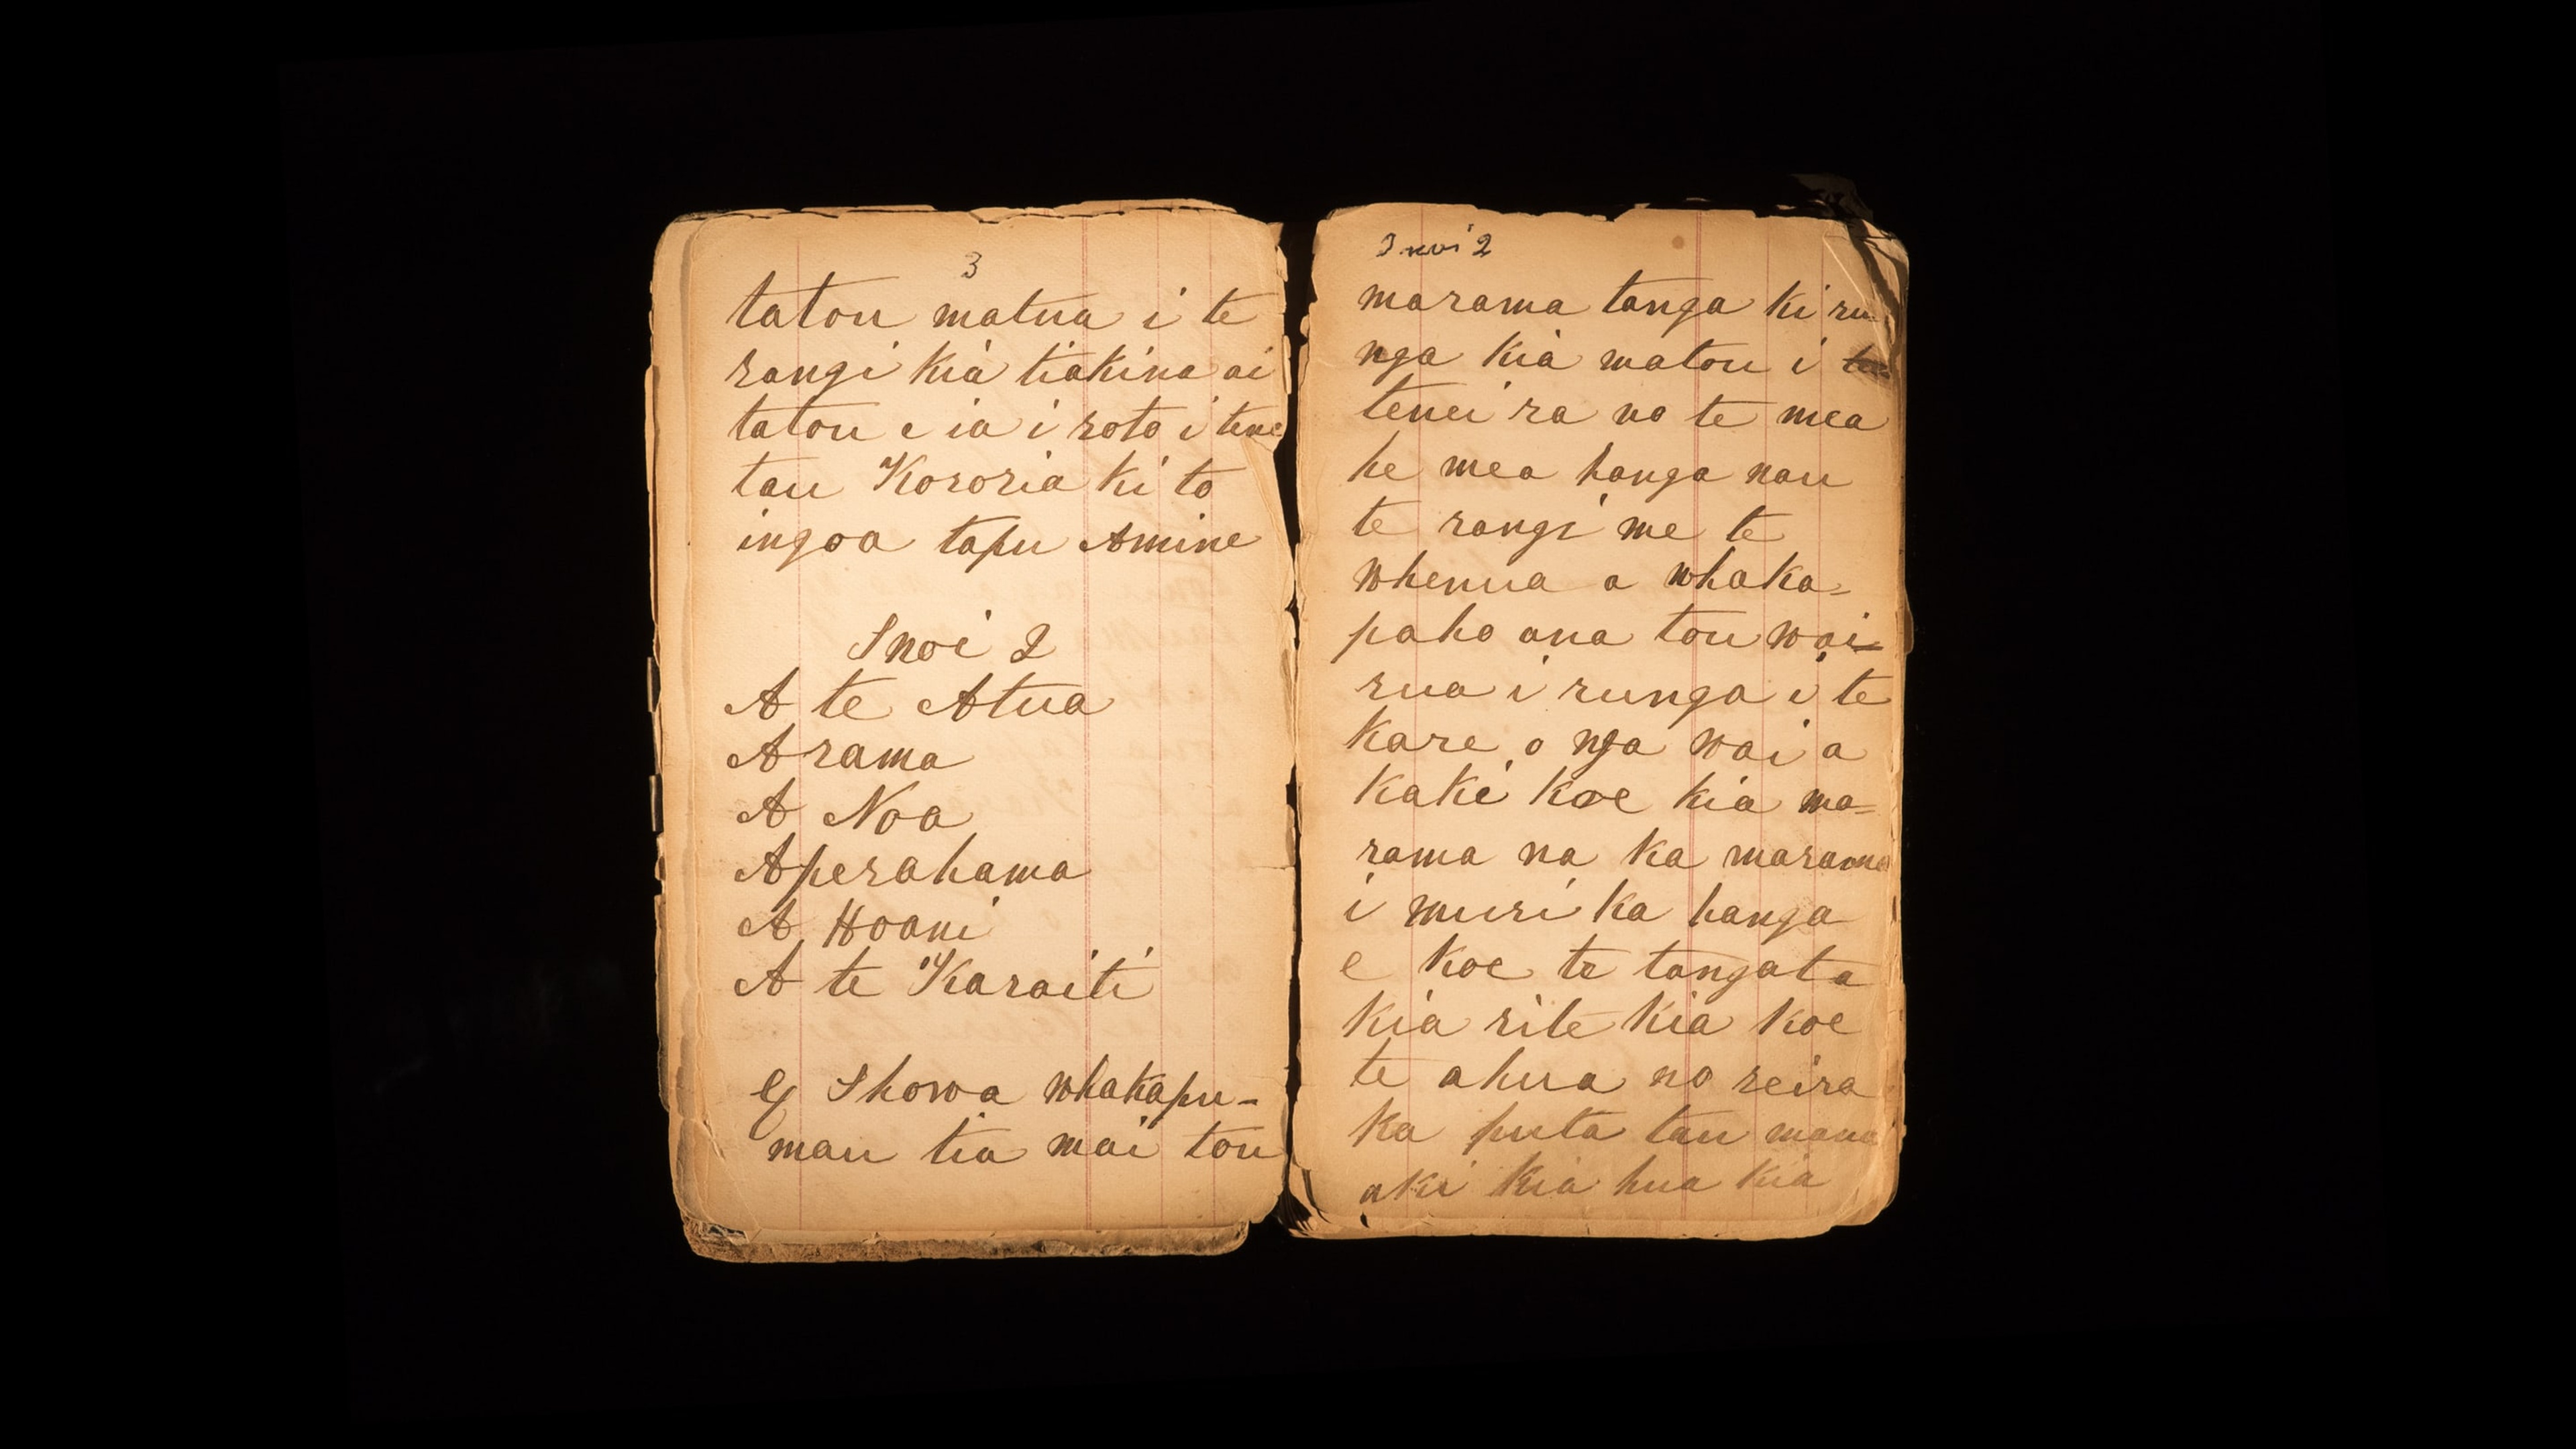 3
tatou matua i te
rangi kia tiakina ai
tatou e ia i roto i tene
tau Kororia ki to
ingoa tapu Amine
Inoi 2
A te Atua
Arama
A Noa
Aperahama
A Hoani
A te Karaiti
E Ihowa whakapu-
mau tia mai tou
Inoi 2
marama tanga ki ru
nga kia matou i
tenei ra no te mea
he mea hanga nau
te rangi me te
whenua a whaka=
paho ana tou wai-
rua i runga i te
kare o nga wai a
kaki koe kia ma=
rama na ka marama
i muri ka hanga
e koe te tangata
kia rite kia koe
te ahua no reira
ka puta tau mana
aki kia hua kia